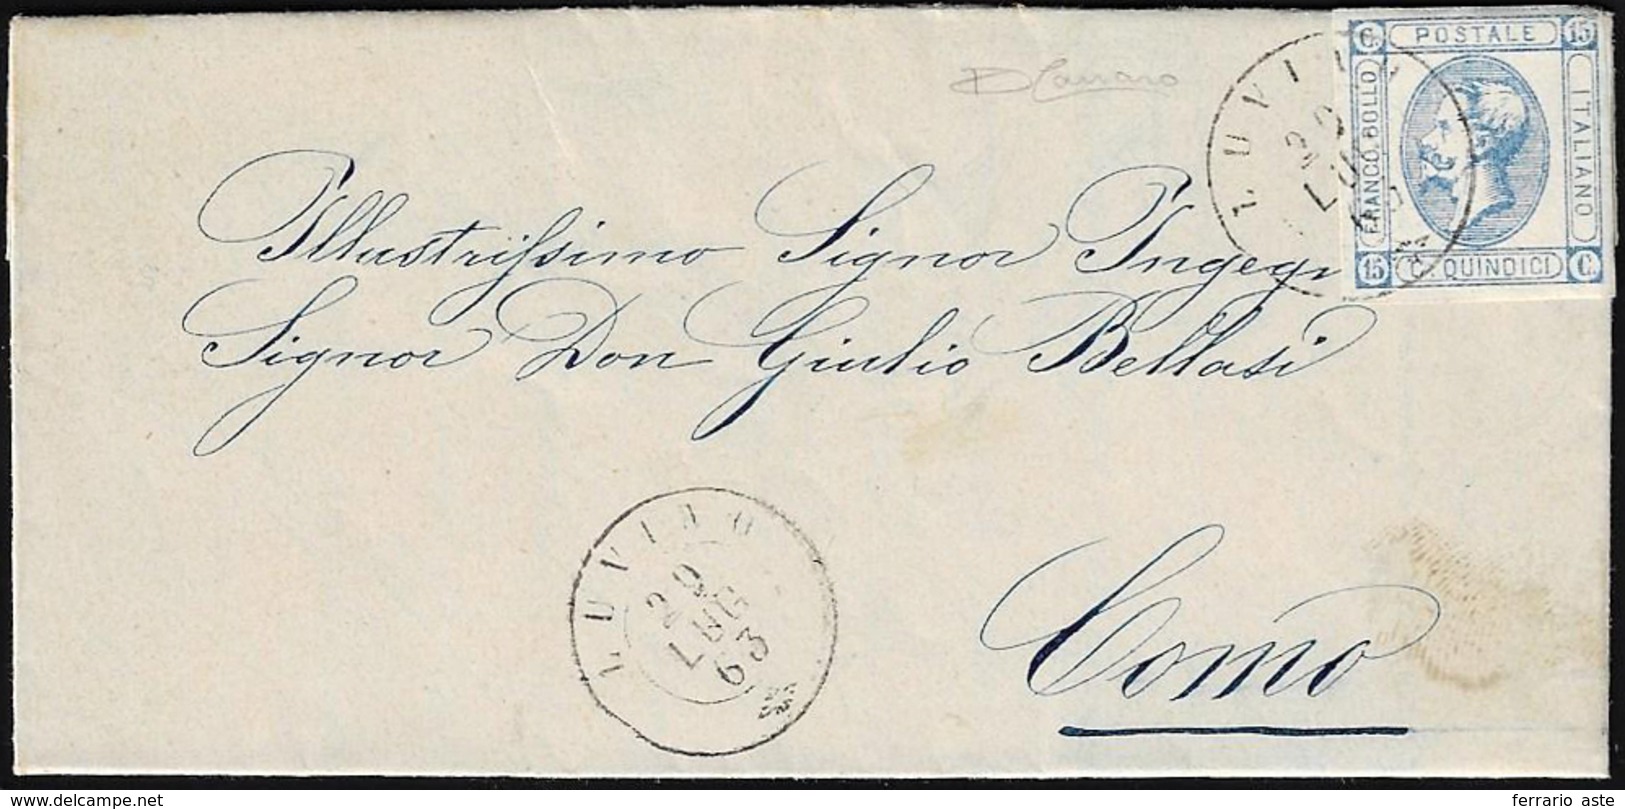 C. POSTALE 15
FRANCO BOLLO
ITALIANO
15 C. QUINDICI C.
LUVINO
29
LUG
63
Illustrissimo Signor Ingegr
Signor Don Giulio Bellasi
LUVINO
29
LUG
63
Como
delcampe.net
ferrario aste